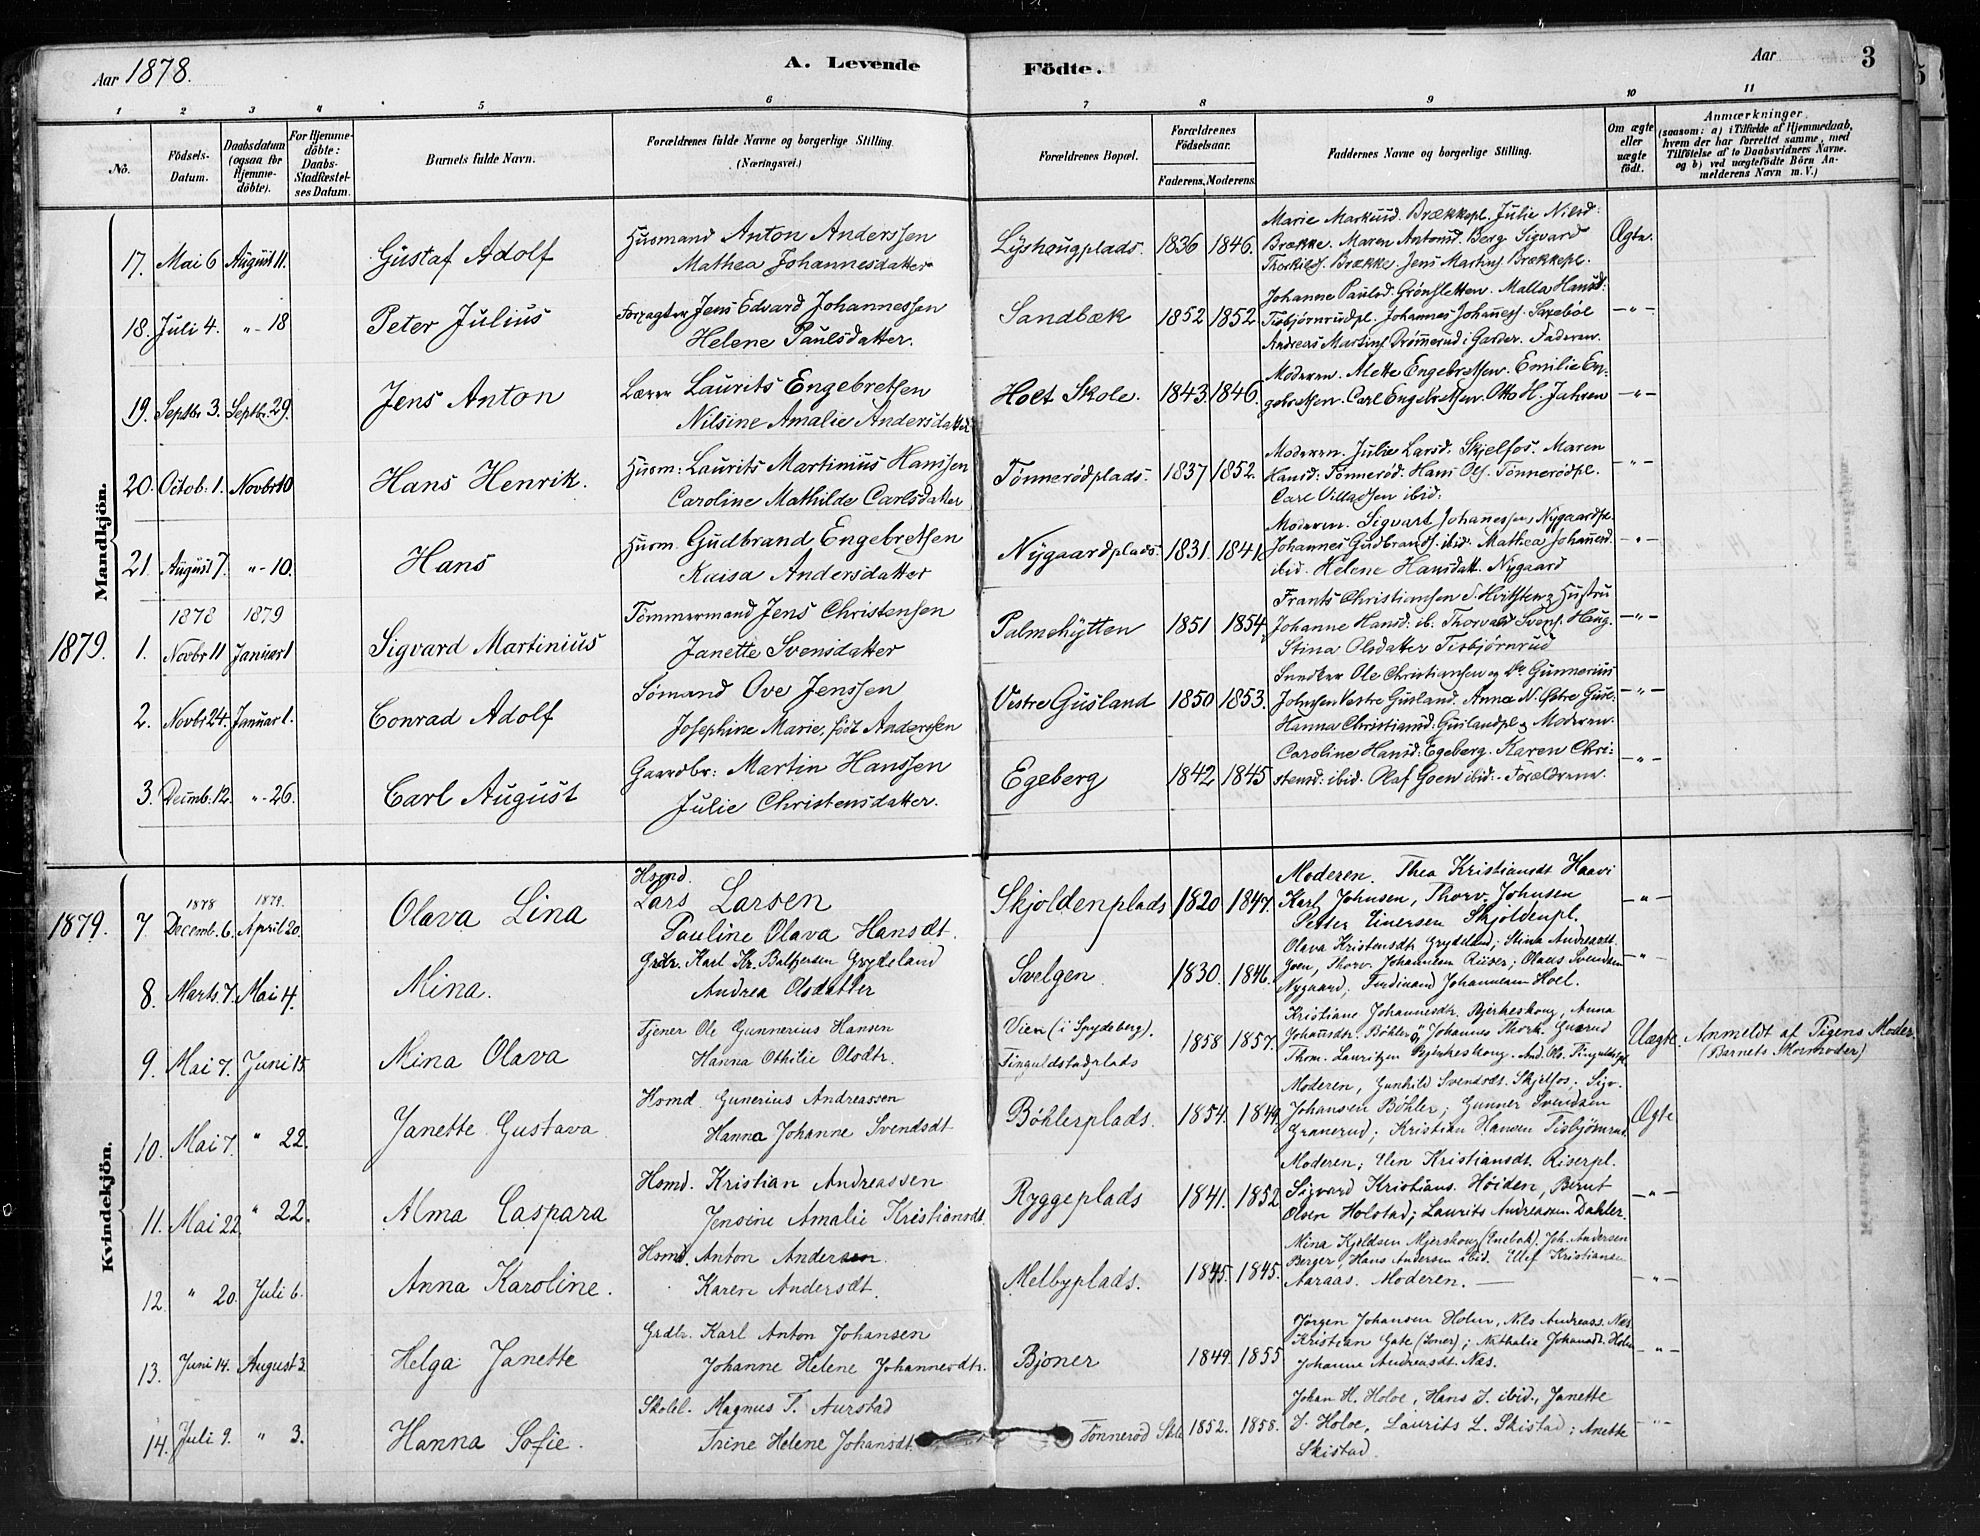 Aar 1878. A. Levende Födte. Aar 3
1 2 3 4 5 6 7 8 9 10 11
No. Födsels-Datum. Daabsdatum (ogsaa for Hjemme-döbte). For Hjemme-döbte: Daabs-Stadfæstel-ses Datum. Barnets fulde Navn. Forældrenes fulde Navne og borgerlige Stilling. (Næringsvei.) Forældrenes Bopæl. Forældrenes Födselsaar. Faderens. Moderens. Faddernes Navne og borgerlige Stilling. Om ægte eller uægte födt. Anmærkninger. (saasom: a) i Tilfælde af Hjemmedaab, hvem der har forrettet samme, med Tilföielse af to Daabsvidners Navne. og b) ved uægtefödte Börn An-melderens Navn m. V.)
Mandkjön.
17. Mai 6 August 11. Gustaf Adolf
Husmand Anton Anderssen
Mathea Johannesdatter
Lyshougplads. 1836 1846.
Marie Markusd. Brækkepl. Julie Nilsd:
Brække. Maren Antonsd. Berg Sigvard
Thorkilds. Brække. Jens Martins. Brækkepl.
Ægte.
18. Juli 4. "-18 Peter Julius
Forpagter Jens Edvard Johannessen
Helene Paulsdatter.
Sandbæk 1852 1852
Johanne Paulsd. Grønsletten. Malla Hansd:
Tisbjørnrudpl. Johannes Johaness. Saxebøl
Andreas Martins. Drømmerud i Garder. Faderen.
-"-
19. Septbr 3. Septbr. 29. Jens Anton
Lærer Laurits Engebretsen
Nilsine Amalie Andersdatter
Holt Skole. 1843 1846.
Moderen. Alette Engebretsen. Emilie En-
gebretsen. Carl Engebretsen. Otto H. Jahren
-"-
20. Octob: 1. Novbr 10 Hans Henrik.
Husm: Laurits Martinius Hanssen
Caroline Mathilde Carlsdatter
Tønnerødplads. 1837 1852.
Moderen. Julie Larsd. Skjelfos. Maren
Hansd: Tønnerød. Hans Ols. Tønnerødpl.
Carl Villadsen ibid:
-"-
21. August 7. "-10. Hans
Husm. Gudbrand Engebretsen
Kaisa Andersdatter
Nygaardplads. 1831. 1841.
Moderen. Sigvart Johanessen, Nygaardpl.
Johannes Gudbrands. ibid: Mathea Johannesd.
ibid. Helene Hansdatt. Nygaard
-"-
1878 1879
1879. 1. Novbr 11 Januar 1 Sigvard Martinius
Tømmermand Jens Christensen
Janette Svensdatter
Palmehytten 1851 1854
Frants Christiansen S. Hvitsten & Hustru
Johanne Hansd. ib. Thorvald Svens. Haug.
Stina Olsdatter Tisbjørnrud
-"-
2. Novbr 24. Januar 1. Conrad Adolf
Sømand Ove Jenssen
Josephine Marie, født Anderssen
Vestre Gusland 1850 1853.
Ole Christiansen og Gunnerius
Johnsen Vestre Gusland. Anna N. Østre Gusl.
Hanna Christiansd: Guslandpl & Moderen.
-"-
3. Decmb. 12. "-26. Carl August
Gaardbr: Martin Hanssen
Julie Christensdatter.
Egeberg 1842 1845
Caroline Hansd: Egeberg. Karen Chri-
stensd: ibid. Olaf Goen ibid:. Forældrene.
-"-
Kvindekjön.
1878 1879.
1879. 7. Decemb. 6. April 20. Olava Lina
Hsmd.
Lars Larsen
Pauline Olava Hansdt.
Skjoldenplads 1820 1847.
Moderen. Thea Kristiansdt Haavi
Karl Johnsen, Thorv. Johnsen
Petter Einersen Skjoldenpl.
-"-
8. Marts 7. Mai 4. Mina.
Grdr. Karl Kr. Baltzersen Grydeland
Andrea Olsdatter
Svelgen. 1830. 1846.
Olava Kristensdtr Grydeland; Stina Andreasdt.
Goen, Thorv. Johannesen Riiser; Olaus Svendsen
Nygaard; Ferdinand Johannesen Hoel.
-"-
9. Mai 7. Juni 15. Mina Olava
Tjener Ole Gunnerius Hansen
Hanna Othilie Olsdtr.
Vien (i Spydeberg).
Finguldstadplads
1858 1857.
Kristiane Johannesdtr. Bjerkeskoug, Anna
Johansdtr. Bøhler; Johannes Thork. Guerud
Thom. Lauritzen Bjerkeskoug. And. Ols. Finguldspl.
Uægte.
Anmeldt af Pigens Moder
(Barnets Mormoder)
10. Mai 7. " 22. Janette Gustava
Hsmd. Gunerius Andreassen
Hanna Johanne Svendsdt
Bøhlerplads. 1854. 1849.
Moderen, Gunhild Svendsdt. Skjelfos; Sigv.
Johansen Bøhler; Gunner Svendsen
Granerud; Kristian Hansen Tisbjørnrud.
Ægte
11. Mai 22. " 22. Alma Caspara
Hsmd. Kristian Andreassen
Jensine Amalie Kristiansdt.
Ryggeplads 1841. 1852
Moderen; Elen Kristiansdt. Riserpl.
Sigvard Kristians. Høiden, Bernt
Olsen Holstad; Laurits Andreasen Dahler.
-"-
12. " 20. Juli 6. Anna Karoline.
Hsmd. Anton Andersen.
Karen Andersdt.
Melbyplads. 1845. 1845.
Mina Kjeldsen Mjerskoug (Enebak), Joh. Andersen
Berger, Hans Andersen ibid. Ulef Kristiansen
Aaraas. Moderen.
-"-
13. Juni 14. August 3. Helga Janette
Grdbr. Karl Anton Johansen
Johanne Helene Johannesdtr.
Bjoner 1849. 1855
Jørgen Johansen Holm, Nils Andreass. Næs
Kristian Gate (Soner); Nathalie Johansdt. Holm
Johanne Andreasdt. Næs.
-"-
14. Juli 9. " 3. Hanna Sofie.
Skolel. Magnus T. Aurstad
Trine Helene Johansdt.
Tønnerød Skole 1852. 1858.
Johan H. Holoe, Hans J. ibid., Janette
J. Holoe, Laurits L. Skistad; Anette
Skistad.
-"-